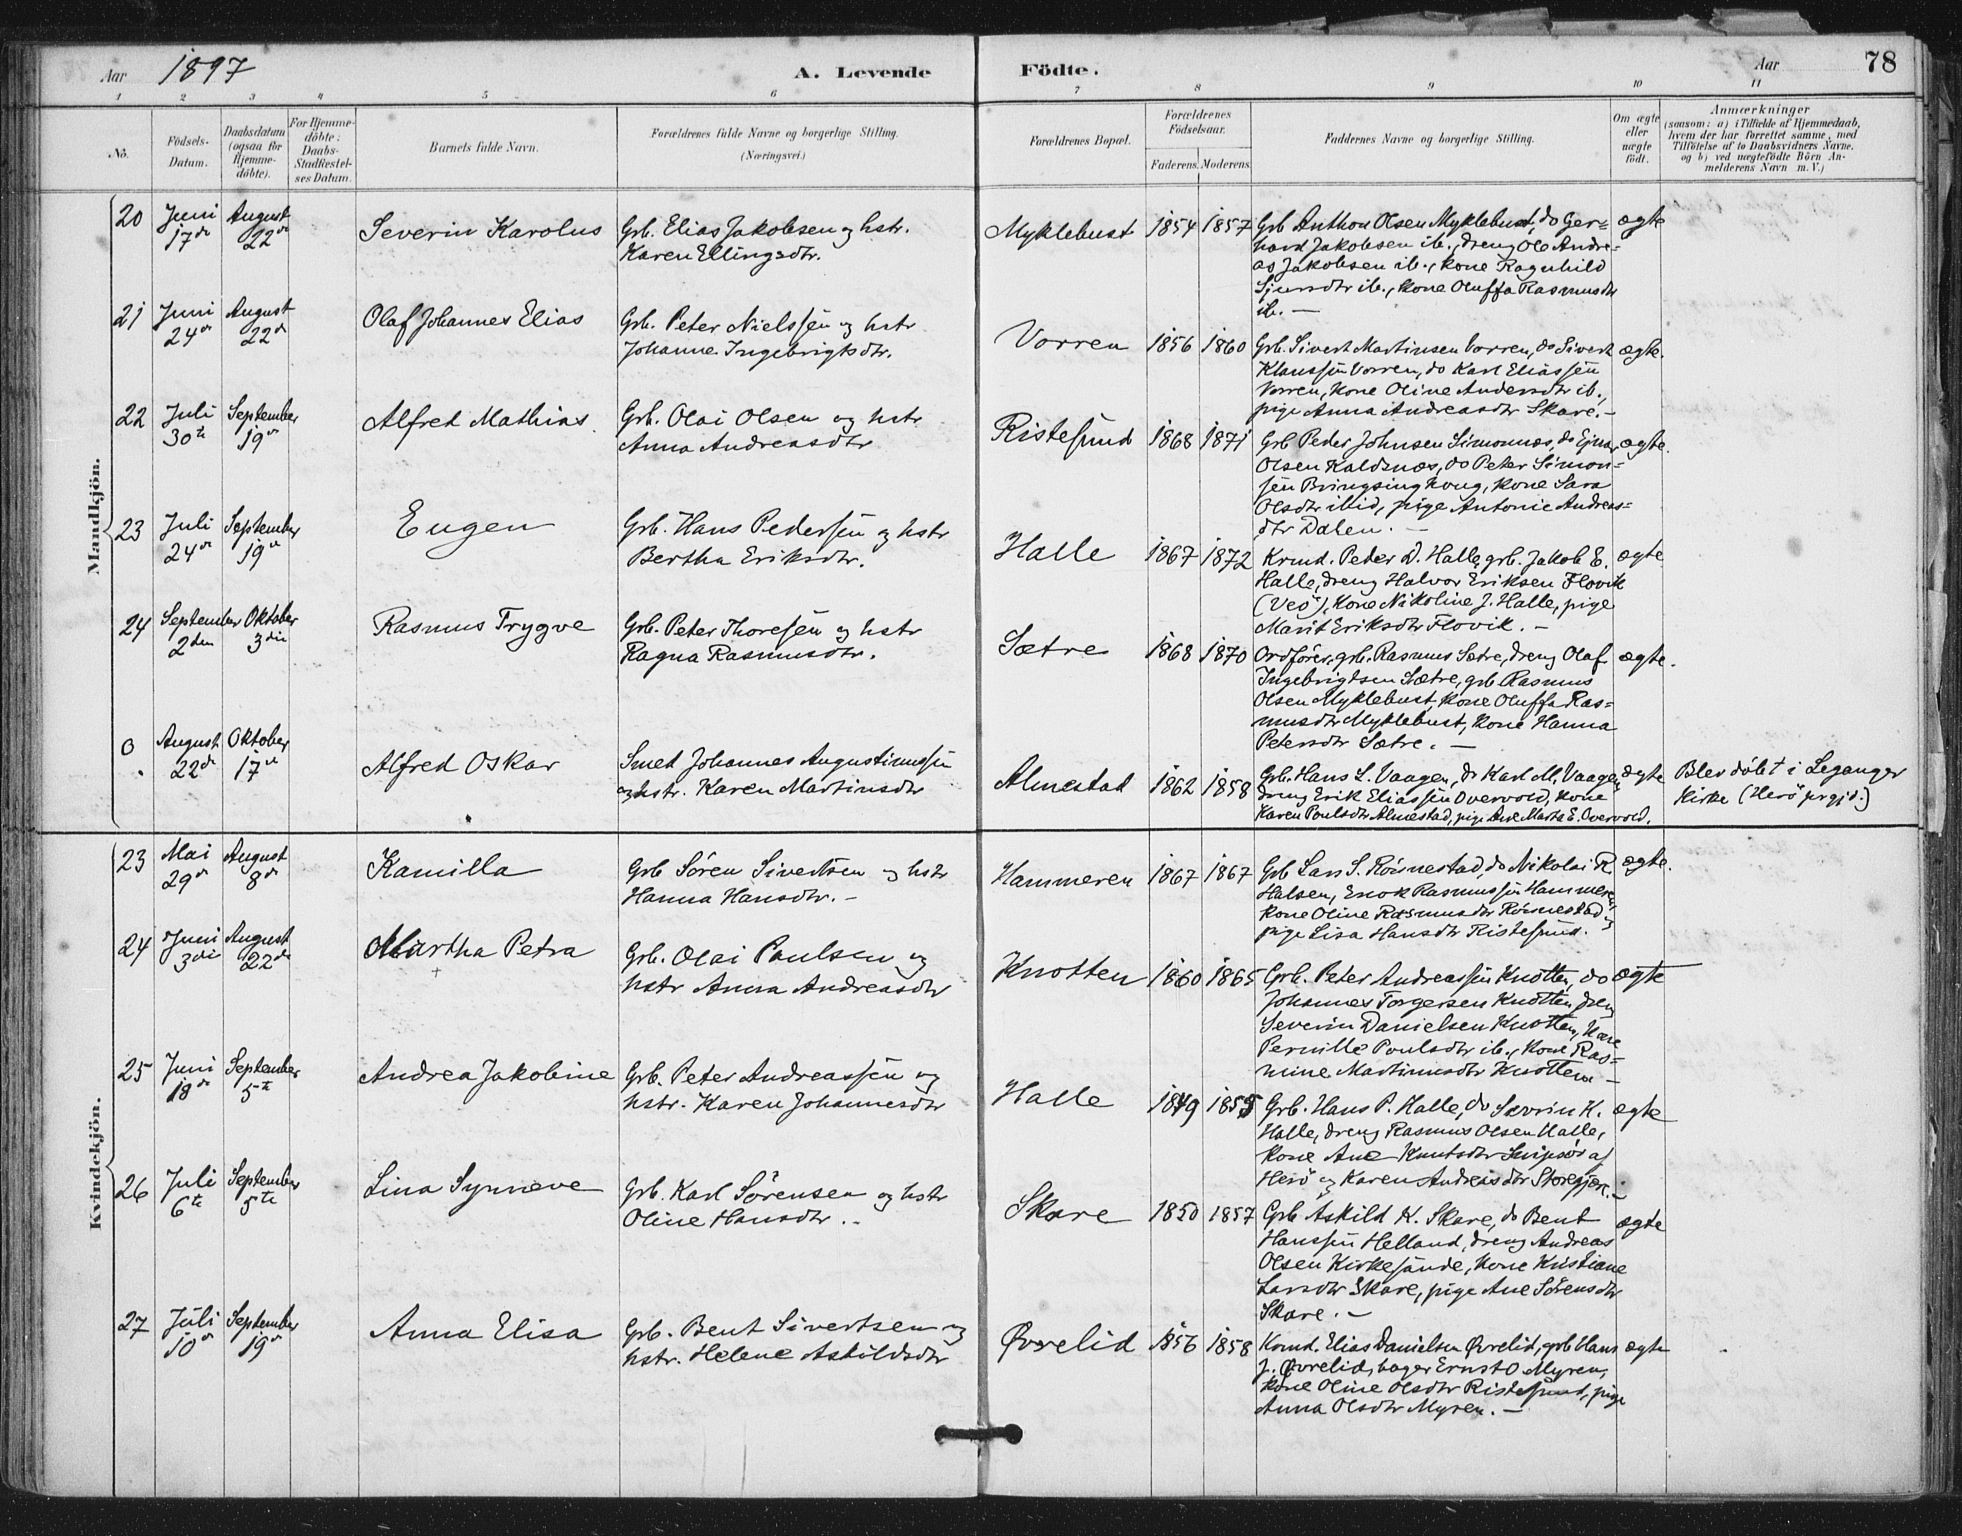 Aar 1897
A. Levende Födte.
Aar 78
1 2 3 4 5 6 7 8 9 10 11
No.
Födsels-Datum.
Daabsdatum (ogsaa for Hjemme-döbte).
For Hjemme-döbte: Daabs-Stadfæstel-ses Datum.
Barnets fulde Navn.
Forældrenes fulde Navne og borgerlige Stilling. (Næringsvei.)
Forældrenes Bopæl.
Forældrenes Födselsaar.
Faderens. Moderens.
Faddernes Navne og borgerlige Stilling.
Om ægte eller uægte födt.
Anmærkninger
(saasom: a) i Tilfælde af Hjemmedaab,
hvem der har forrettet samme, med
Tilföielse af to Daabsvidners Navne,
og b) ved uægtefödte Börn An-
melderens Navn m. V.)
Mandkjön.
20 Juni 17de August 22de Severin Karolus Grb. Elias Jakobsen og hstr.
Karen Ellingsdtr.
Myklebust 1854 1857 Grb Anthon Olsen Myklebust, do Ger=
hard Jakobsen ib., dreng Ole Andre-
as Jakobsen ib., kone Ragnhild
Sjursdtr ib., kone Oluffa Rasmusdtr
ib. —
ægte
21 Juni 24de August 22de Olaf Johannes Elias Grb. Peter Nielssen og hstr
Johanne Ingebrigtsdtr.
Vorren 1856 1860 Grb. Sivert Martinsen Vorren, do Sivert
Klaussen Vorren, do Karl Eliassen
Vorren, kone Oline Andersdtr ib.,
pige Anna Andreasdtr Skare. —
ægte.
22 Juli 30te September 19de Alfred Mathias. Grb. Olai Olsen og hstr
Anna Andreasdtr
Ristesund 1868 1871 Grb Peder Johnsen Simonnæs, do Ejnar
Olsen Kaldsnæs, do Peter Simon=
sen Bringsinghoug, kone Sara
Olsdtr ibid, pige Antonie Andreas=
dtr Dalen. —
ægte.
23 Juli 24de September 19de Eugen Grb. Hans Pedersen og hstr
Bertha Eriksdtr.
Halle 1867 1872 Krmd. Peter D. Halle, grb. Jakob E.
Halle, dreng Halvor Eriksen Flovik
(Veö), kone Nikoline J. Halle, pige
Marit Eriksdtr Flovik. —
ægte
24 September 2den Oktober 3die Rasmus Trygve Grb. Peter Thoresen og hstr
Ragna Rasmusdtr.
Sætre 1868 1870 Ordförer, grb. Rasmus Sætre, dreng Olaf
Ingebrigtsen Sætre, grb Rasmus
Olsen Myklebust, kone Oluffa Ras=
musdtr Myklebust, kone Hanna
Petersdtr Sætre. —
ægte.
0 August 22de Oktober 17de Alfred Oskar Smed Johannes Augustinussen
og hstr. Karen Martinsdtr
Almestad 1862 1858 Grb. Hans L. Vaagen, do Karl M. Vaagen,
dreng Erik Eliassen Overvold, kone
Karen Poulsdtr Almestad, pige Ane Marta E. Overvold.
ægte Blev döbt i Leganger
Kirke (Herö prgjd.)
Kvindekjön.
23 Mai 29de August 8de Kamilla Grb Sören Sivertsen og hstr
Hanna Hansdtr. —
Hammeren 1867 1867 Grb Lars S. Rönnestad, do Nikolai R.
Halsen, Enok Rasmussen Hammeren,
kone Oline Rasmusdtr Rönnestad,
pige Lisa Hansdtr Ristesund.
ægte.
24 Juni 3die August 22de Martha Petra Grb. Olai Paulsen og
hstr Anna Andreasdtr
Knotten 1860 1865 Grb. Peter Andreassen Knotten, do
Johannes Torgersen Knotten, dreng
Severin Danielsen Knotten, kone
Pernille Poulsdtr ib., kone Ras=
mine Martinusdtr Knotten —
ægte
25 Juni 18de September 5te Andrea Jakobine Grb. Peter Andreassen og
hstr. Karen Johannesdtr
Halle 1849 1855 Grb. Hans P. Halle, do Sevrin K.
Halle, dreng Rasmus Olsen Halle,
kone Ane Knutsdtr af
Herö og Karen Andreasdtr
ægte
26 Juli 6te September 5te Lina Synneve Grb. Karl Sörensen og hstr
Oline Hansdtr. —
Skare 1850 1857 Grb Askild K. Skare, do Bent
Hanssen Helland, dreng Andreas
Olsen Kirkesunde, kone Kristiane
Larsdtr Skare, pige Ane Sörensdtr
Skare. —
ægte
27 Juli 10de September 19de Anna Elisa Grb. Bent Sivertsen og
hstr. Helene Askildsdtr
Øvrelid 1856 1858 Krmd. Elias Danielsen Øvrelid, grb Hans
J. Øvrelid, bager Ernst O Myren,
kone Oline Olsdtr Ristesund, pige
Anna Olsdtr Myren. —
ægte